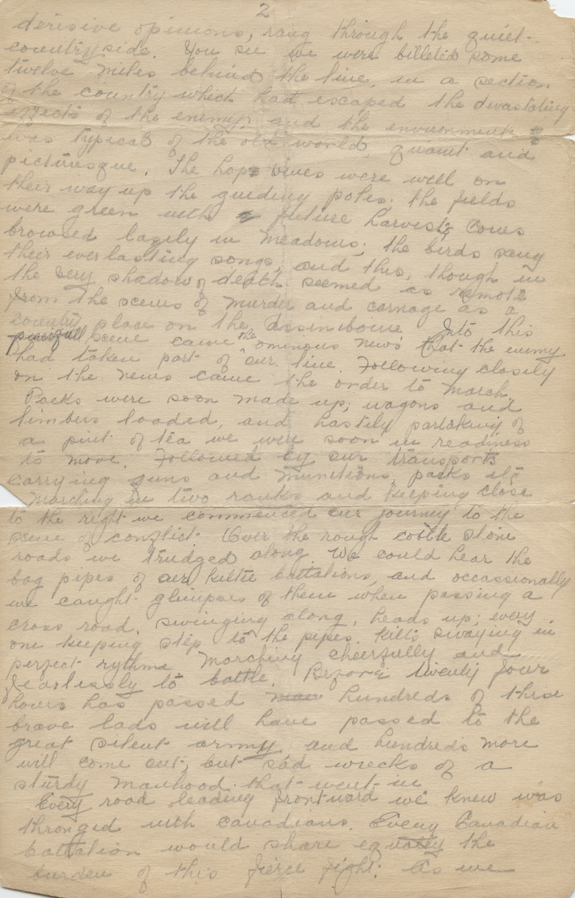 2
derisive opinions, rang through the quiet
countryside. You see we were billeted some
twelve miles behind the line, in a section
of the country which had escaped the devastating
effects of the enemy, and the environment
was typical of the old world, quaint and
picturesque. The hop vines were well on
their way up the guiding poles. the fields
were green with future harvests, cows
browsed lazily in meadows; the birds sang
their everlasting songs, and this, though in
the very shadow of death seemed as remote
from the scenes of murder and carnage as a
country place on the Assiniboine. Into this
peaceful scene came the ominous news that the enemy
had taken part of our line. Following closely
on the news came the order to march.
Packs were soon made up, wagons and
limbers loaded, and hastily partaking of
a pint of tea we were soon in readiness
to move. Followed by our transports
carrying guns and munitions, packs etc
Marching in two ranks and keeping close
to the right we commenced our journey to the
scene of conflict. Over the rough cobble stone
roads we trudged along. We could hear the
bag pipes of our kiltie battalions, and occasionally
we caught glimpses of them when passing a
cross road. swinging along, heads up; every
one keeping step to the pipes. Kilts swaying in
perfect rythms Marching cheerfully and
fearlessly to battle. Before twenty four
hours has passed hundreds of these
brave lads will have passed to the
great silent army, and hundreds more
will come out, but sad wrecks of a
sturdy manhood that went in
Every road leading frontward we knew was
thronged with Canadians. Every Canadian
battalion would share equally the
burden of this fierce fight. As we